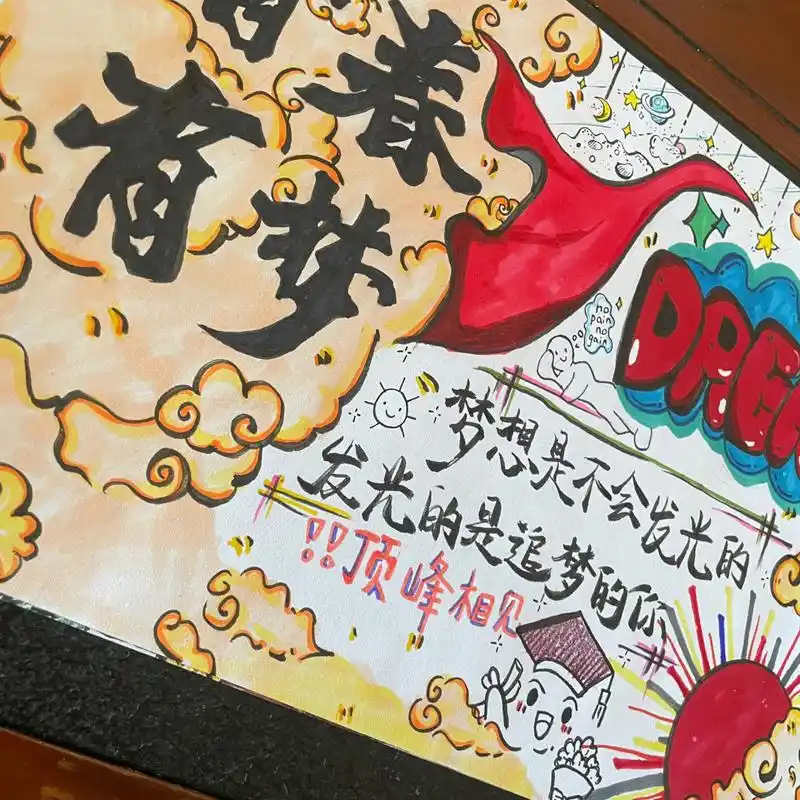 春
梦
DREA
no
pain
no
gain
梦想是不会发光的
发光的是追梦的你
!!顶峰相见